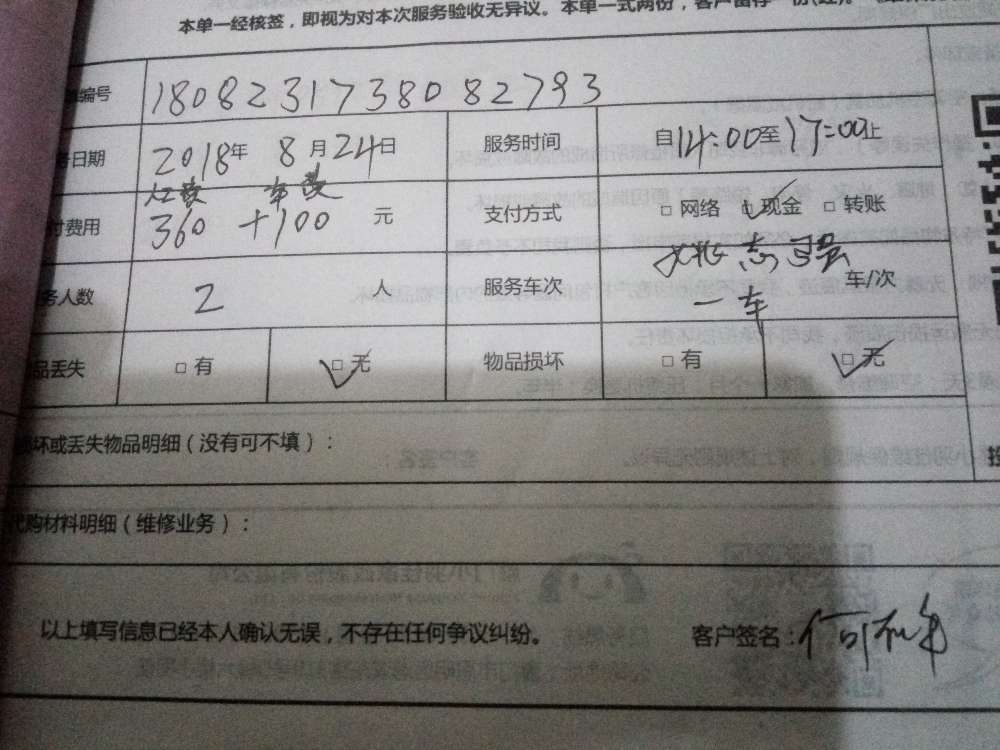 本单一经核签，即视为对本次服务验收无异议。本单一式两份，客户留存一份
编号 18082317380 82793
日期 2018年 8月24日 服务时间 自14:00至17:00止
人费 车费
付费用 360 +100 元 支付方式 □ 网络 □ 现金 □ 转账
务人数 2 人 服务车次 一车 车/次
品丢失 □ 有 □ 无 物品损坏 □ 有 □ 无
坏或丢失物品明细（没有可不填）：
代购材料明细（维修业务）：
以上填写信息已经本人确认无误，不存在任何争议纠纷。 客户签名：